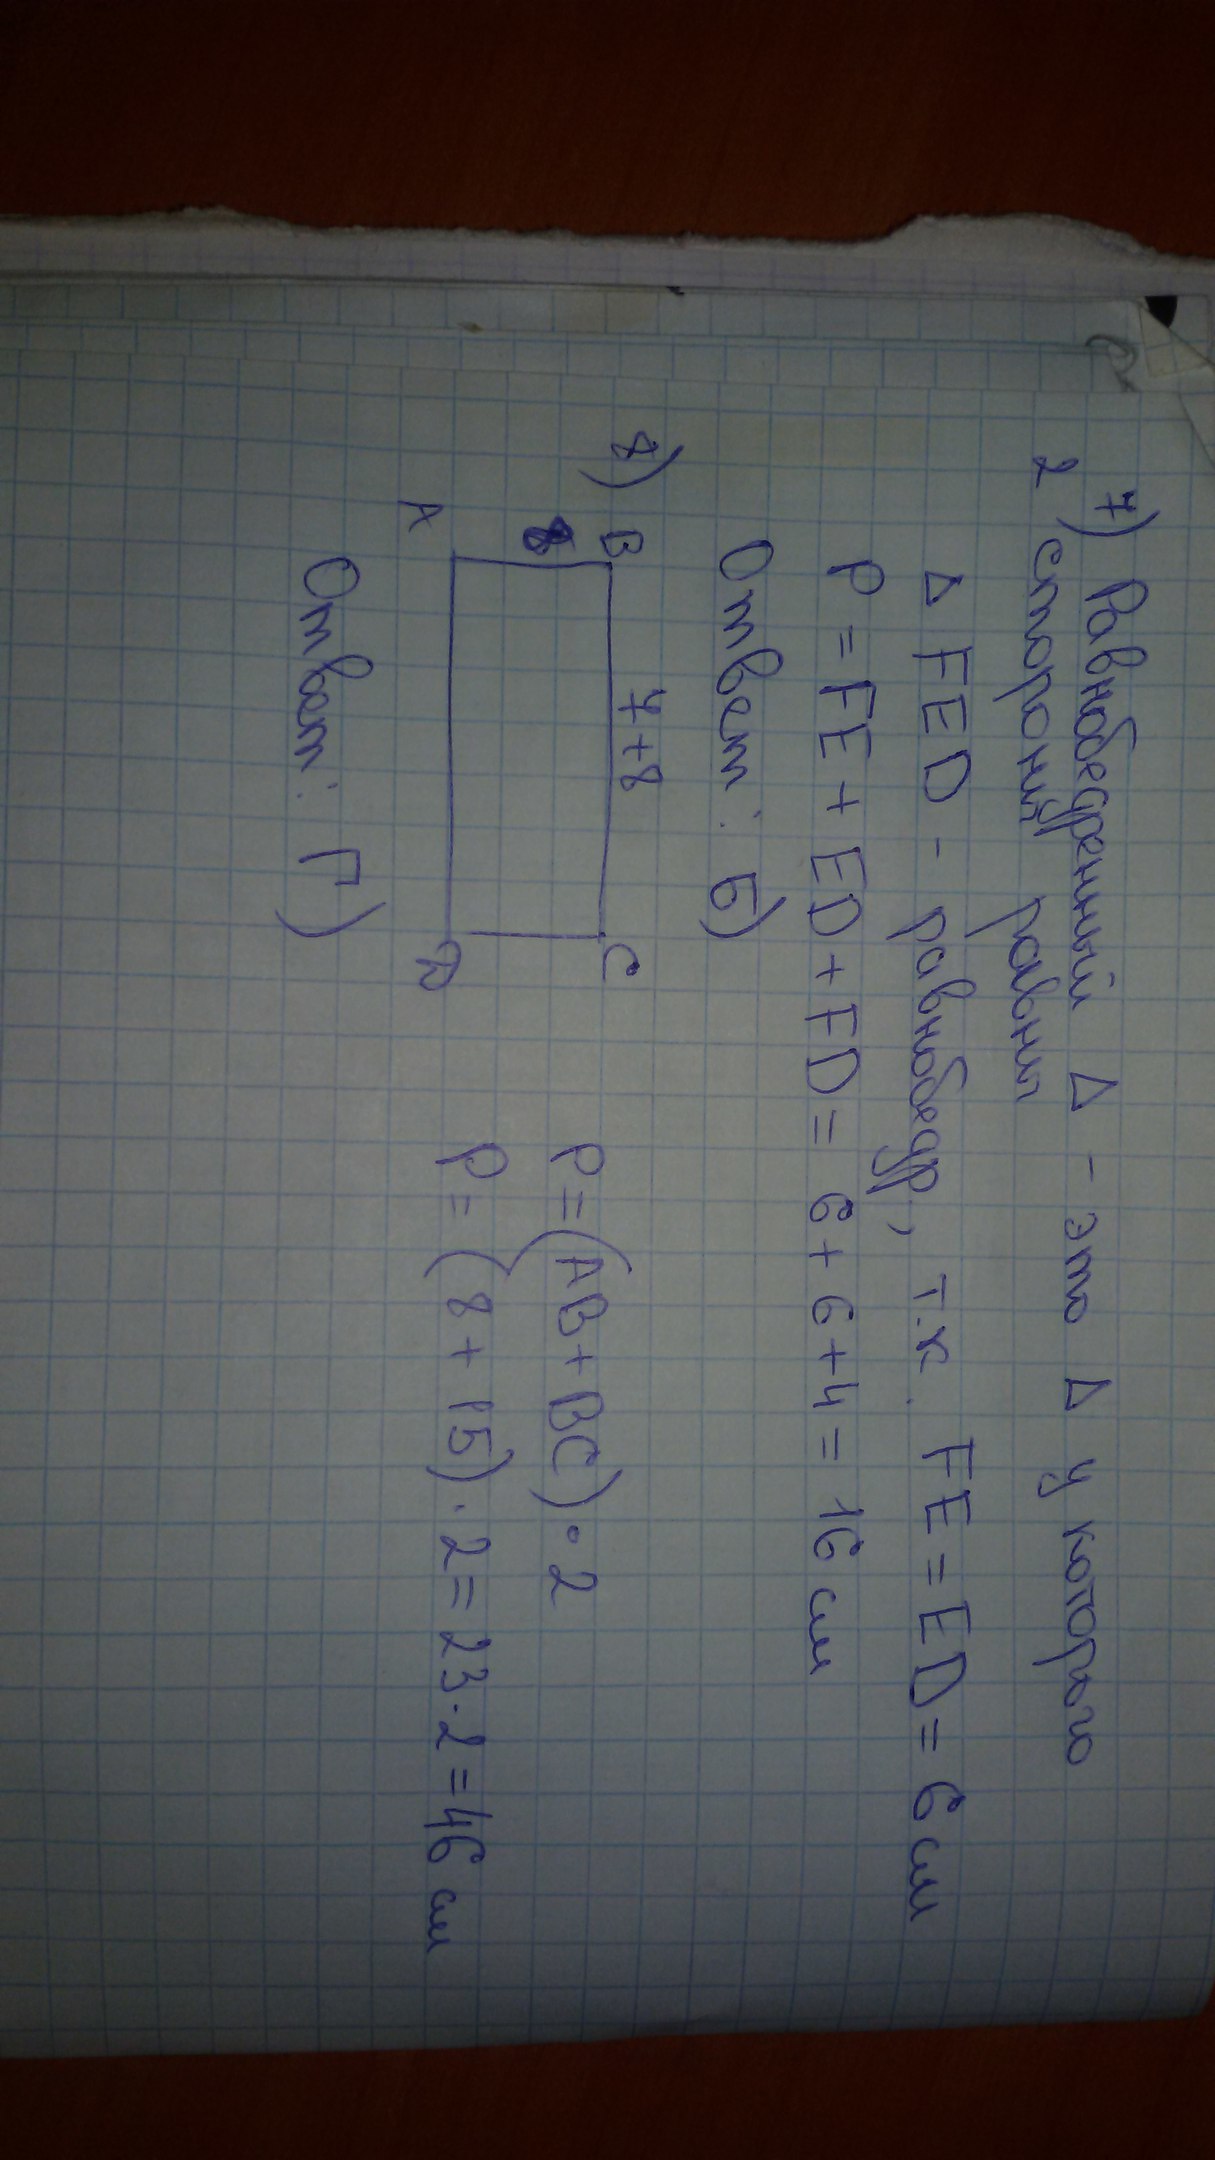 7) Равнобедренный Δ - это Δ у которого
2 стороны равны
Δ FED - равнобедр, т.к. FE = ED = 6 см
P = FE + ED + FD = 6 + 6 + 4 = 16 см
Ответ: Б)
7)
B
7+8
C
8
A
D
P = (AB + BC) · 2
P = (8 + 15) · 2 = 23 · 2 = 46 см
Ответ: Г)